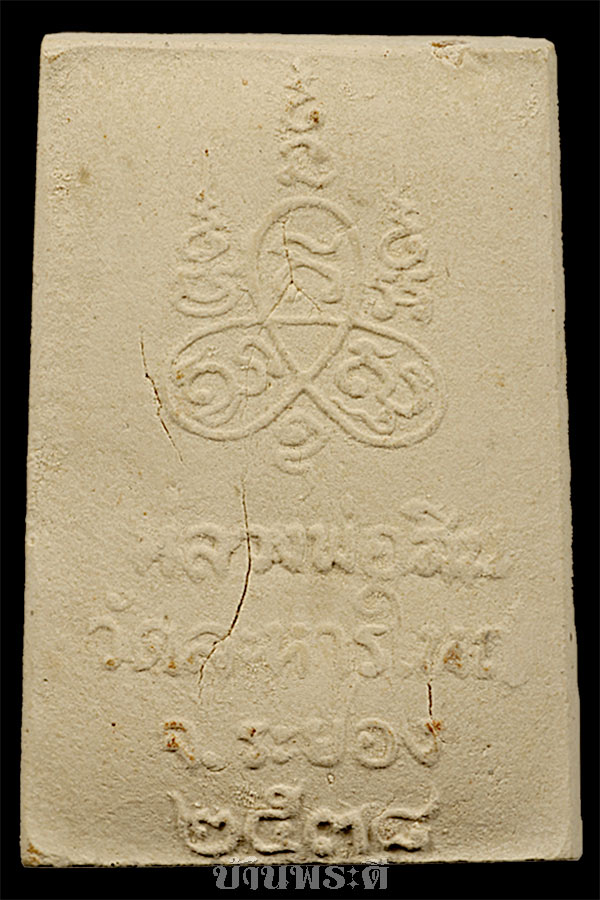 หลวงพ่อสิน
วัดละหารใหญ่
จ.ระยอง
๒๕๓๘
บ้านพระดี